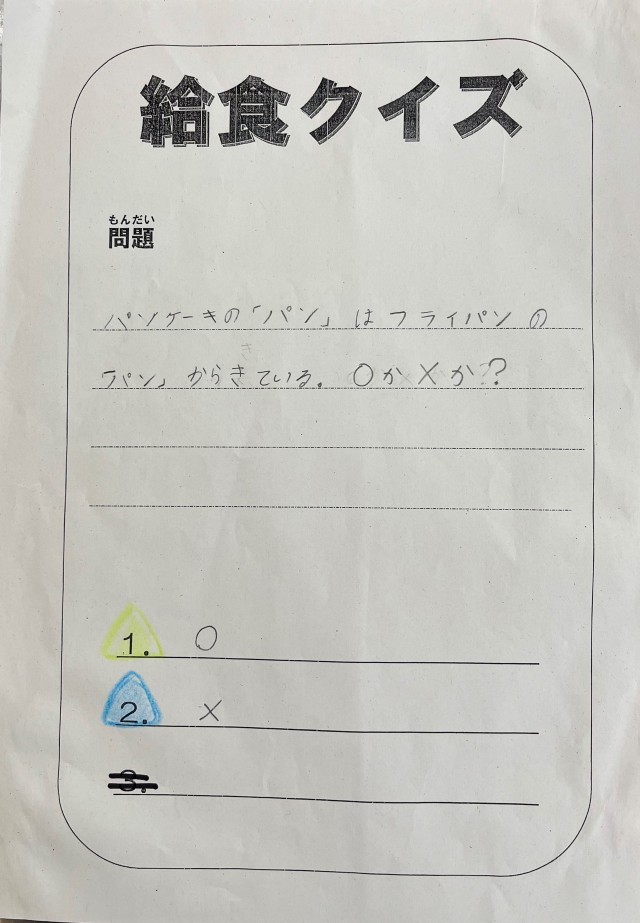 給食クイズ
もんだい
問題
パンケーキの「パン」はフライパンの
「パン」からきている。○か×か?
1. ○
2. ×
3.